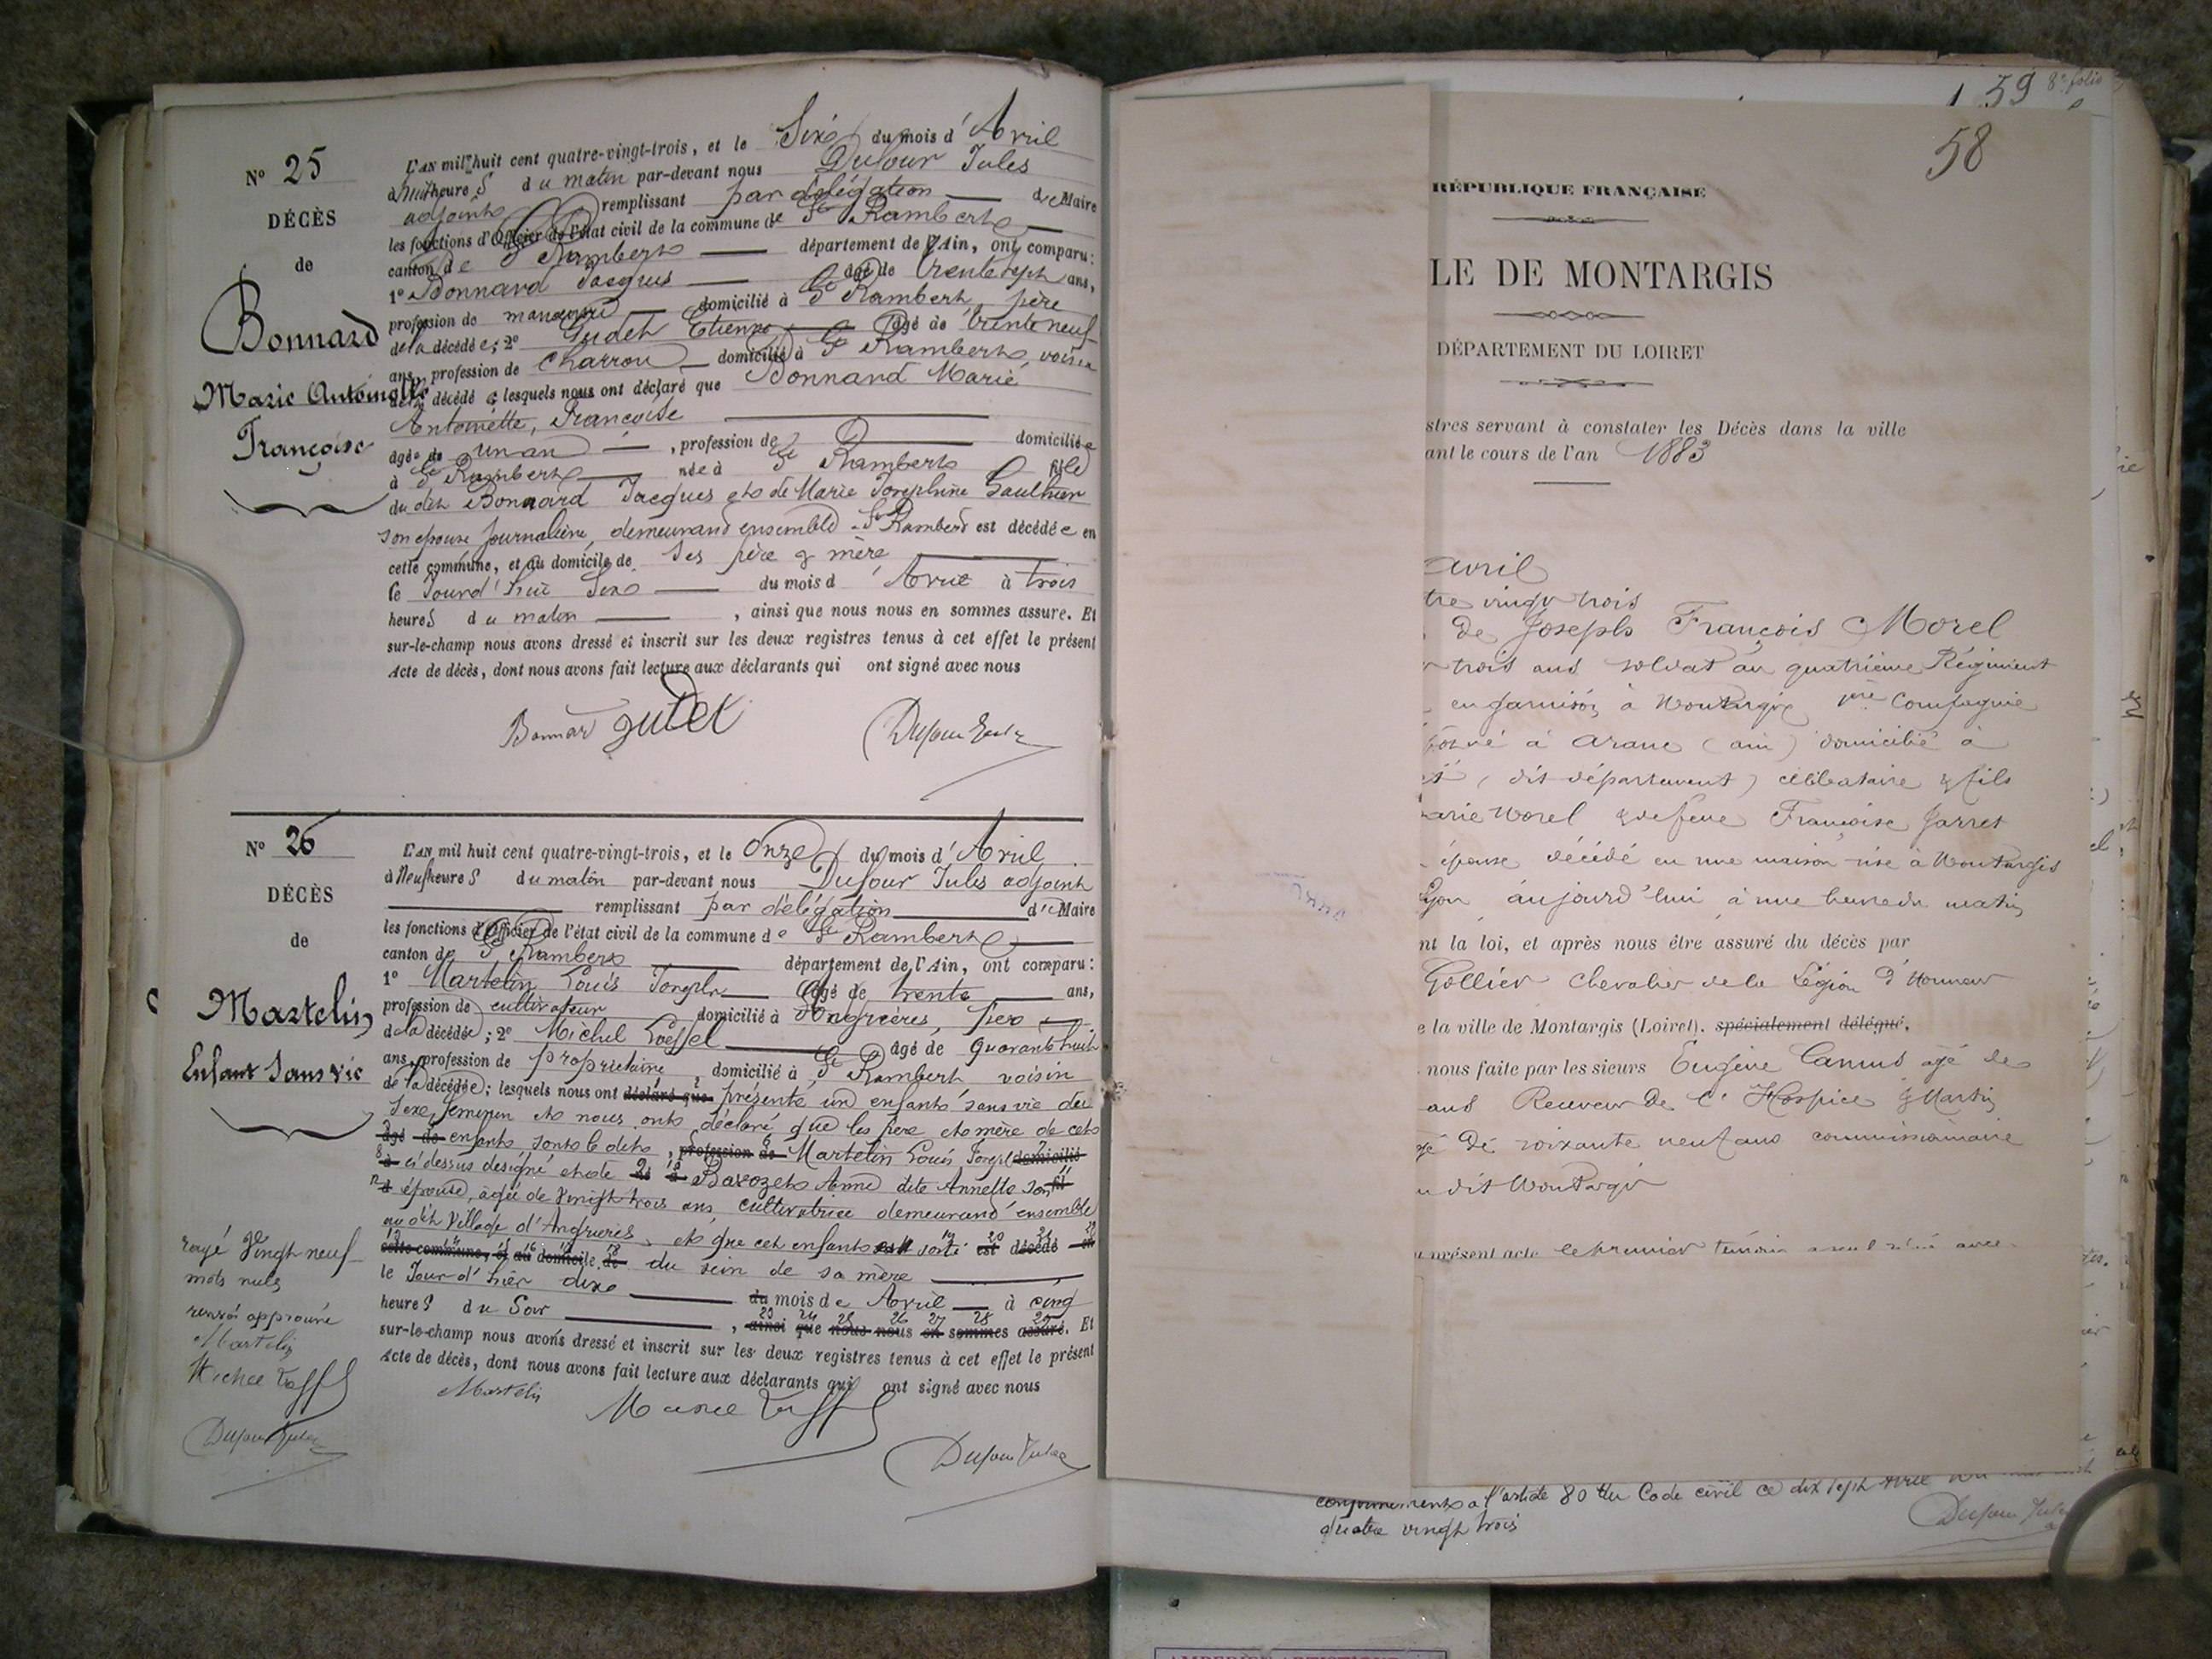 N° 25
DÉCÈS
de
Bonnard
Marie Antoinette
Françoise
L'AN mil huit cent quatre-vingt-trois, et le Six du mois d'Avril
à huit heures du matin par-devant nous Dufour Jules
adjoint remplissant par délégation du Maire
les fonctions d'Officier de l'état civil de la commune de St Rambert
canton de St Rambert département de l'Ain, ont comparu:
1° Bonnard Jacques âgé de trente sept ans,
profession de manœuvre domicilié à St Rambert, père
de la décédée; 2° Gudet Etienne âgé de trente neuf
ans, profession de charron domicilié à St Rambert, voisin
de la décédée; lesquels nous ont déclaré que Bonnard Marie
Antoinette, Françoise
âgée de un an, profession de domiciliée
à St Rambert née à St Rambert fille
du dit Bonnard Jacques et de Marie Joséphine Gauthier
son épouse journalière, demeurand ensemble à St Rambert est décédée en
cette commune, et au domicile de ses père & mère
le Jourd'hui Six du mois d'Avril à trois
heures du matin, ainsi que nous nous en sommes assuré. Et
sur-le-champ nous avons dressé et inscrit sur les deux registres tenus à cet effet le présent
Acte de décès, dont nous avons fait lecture aux déclarants qui ont signé avec nous
Bonnard Gudet Dufour Jules
N° 26
DÉCÈS
de
Martelin
Enfant Sans vie
L'AN mil huit cent quatre-vingt-trois, et le Onze du mois d'Avril
à Neuf heures du matin par-devant nous Dufour Jules adjoint
remplissant par délégation du Maire
les fonctions d'Officier de l'état civil de la commune de St Rambert
canton de St Rambert département de l'Ain, ont comparu:
1° Martelin Louis Joseph âgé de trente ans,
profession de cultivateur domicilié à Angrières, père
de la décédée; 2° Michel Loeffel âgé de quarante huit
ans, profession de propriétaire, domicilié à St Rambert voisin
de la décédée; lesquels nous ont déclaré que présenté un enfant sans vie du
sexe féminin et nous ont déclaré que les père et mère de cet
âgé de enfant sont le dit, profession de Martelin Louis Joseph domicilié
à ci dessus désigné et de né à Barozet Anne dite Annette son fil
d épouse, âgée de vingt trois ans cultivatrice demeurand ensemble
au dit Village d'Angrieres, et que cet enfant est sorti est décédé en
cette commune, et au domicile de du sein de sa mère
le Jour d'hier dix du mois de Avril à cinq
heures du Soir, ainsi que nous nous en sommes assuré. Et
sur-le-champ nous avons dressé et inscrit sur les deux registres tenus à cet effet le présent
Acte de décès, dont nous avons fait lecture aux déclarants qui ont signé avec nous
rayé vingt neuf
mots nuls
renvoi approuvé
Martelin
Dufour Jules
Martelin
Dufour Jules
159 8e folio
58
RÉPUBLIQUE FRANÇAISE
LE DE MONTARGIS
DÉPARTEMENT DU LOIRET
stres servant à constater les Décès dans la ville
ant le cours de l'an 1883
avril
tre vingt trois
de Joseph François Morel
trois ans soldat au quatrième Régiment
en garnison à Montargis 1ère Compagnie
né à Arane (ain) domicilié à
dit département) célibataire & fils
arie Morel & de feue Françoise Jarret
épouse décédé en une maison sise à Montargis
aujourd'hui à une heure du matin
nt la loi, et après nous être assuré du décès par
Gollier Chevalier de la Légion d'Honneur
e la ville de Montargis (Loiret). spécialement délégué.
nous faite par les sieurs Eugène Camus âgé de
ans Receveur de l'Hospice & Martin
gé de soixante neuf ans commissionnaire
u dit Montargis
u présent acte le premier témoin a seul signé avec
conformément à l'article 80 du Code civil ce dix sept Avril
quatre vingt trois
Dufour Jules